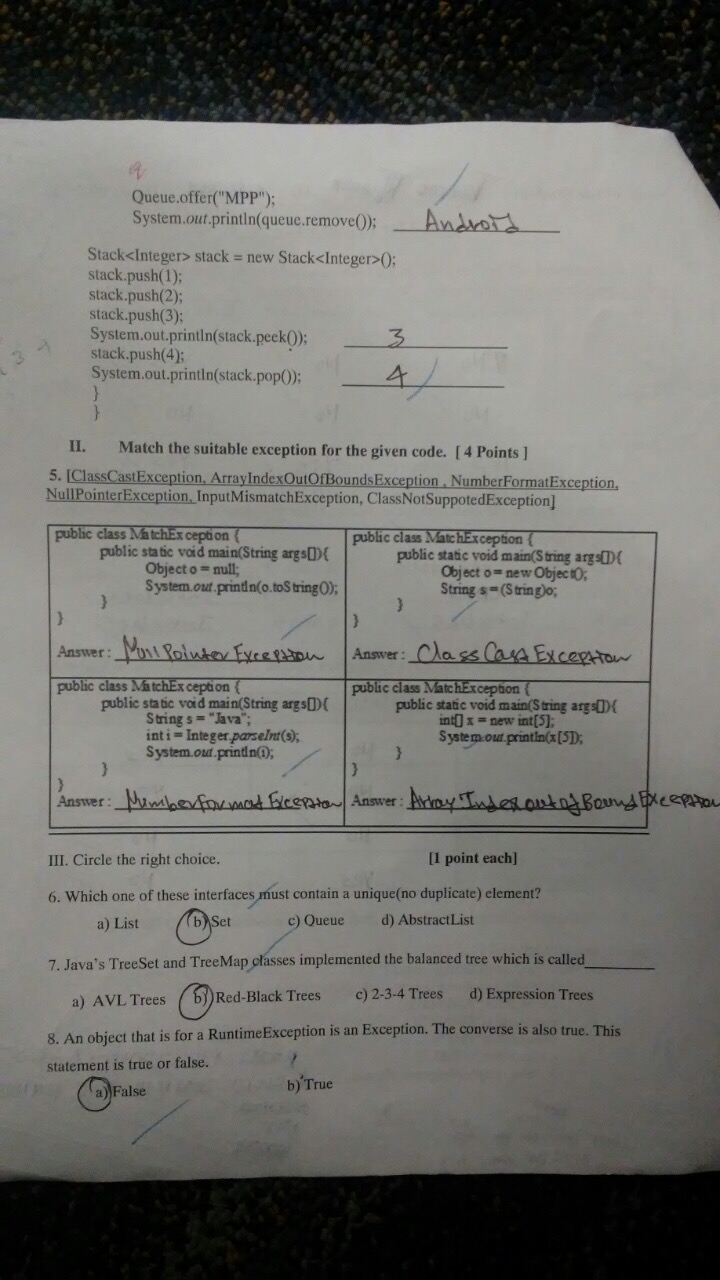 q
Queue.offer("MPP");
System.out.println(queue.remove()); Android
Stack<Integer> stack = new Stack<Integer>();
stack.push(1);
stack.push(2);
stack.push(3);
System.out.println(stack.peek()); 3
stack.push(4);
System.out.println(stack.pop()); 4
}
}
II. Match the suitable exception for the given code. [ 4 Points ]
5. [ClassCastException, ArrayIndexOutOfBoundsException , NumberFormatException,
NullPointerException, InputMismatchException, ClassNotSuppotedException]
public class MatchException {
public static void main(String args[]){
Object o = null;
System.out.println(o.toString());
}
}
Answer : NullPointerException
public class MatchException {
public static void main(String args[]){
Object o = new Object();
String s = (String)o;
}
}
Answer : ClassCastException
public class MatchException {
public static void main(String args[]){
String s = "Java";
int i = Integer.parseInt(s);
System.out.println(i);
}
}
Answer : Number format Exception
public class MatchException {
public static void main(String args[]){
int[] x = new int[5];
System.out.println(x[5]);
}
}
Answer : Array Index out of Bound Exception
III. Circle the right choice. [1 point each]
6. Which one of these interfaces must contain a unique(no duplicate) element?
a) List b) Set c) Queue d) AbstractList
7. Java's TreeSet and TreeMap classes implemented the balanced tree which is called
a) AVL Trees b) Red-Black Trees c) 2-3-4 Trees d) Expression Trees
8. An object that is for a RuntimeException is an Exception. The converse is also true. This
statement is true or false.
a) False b) True